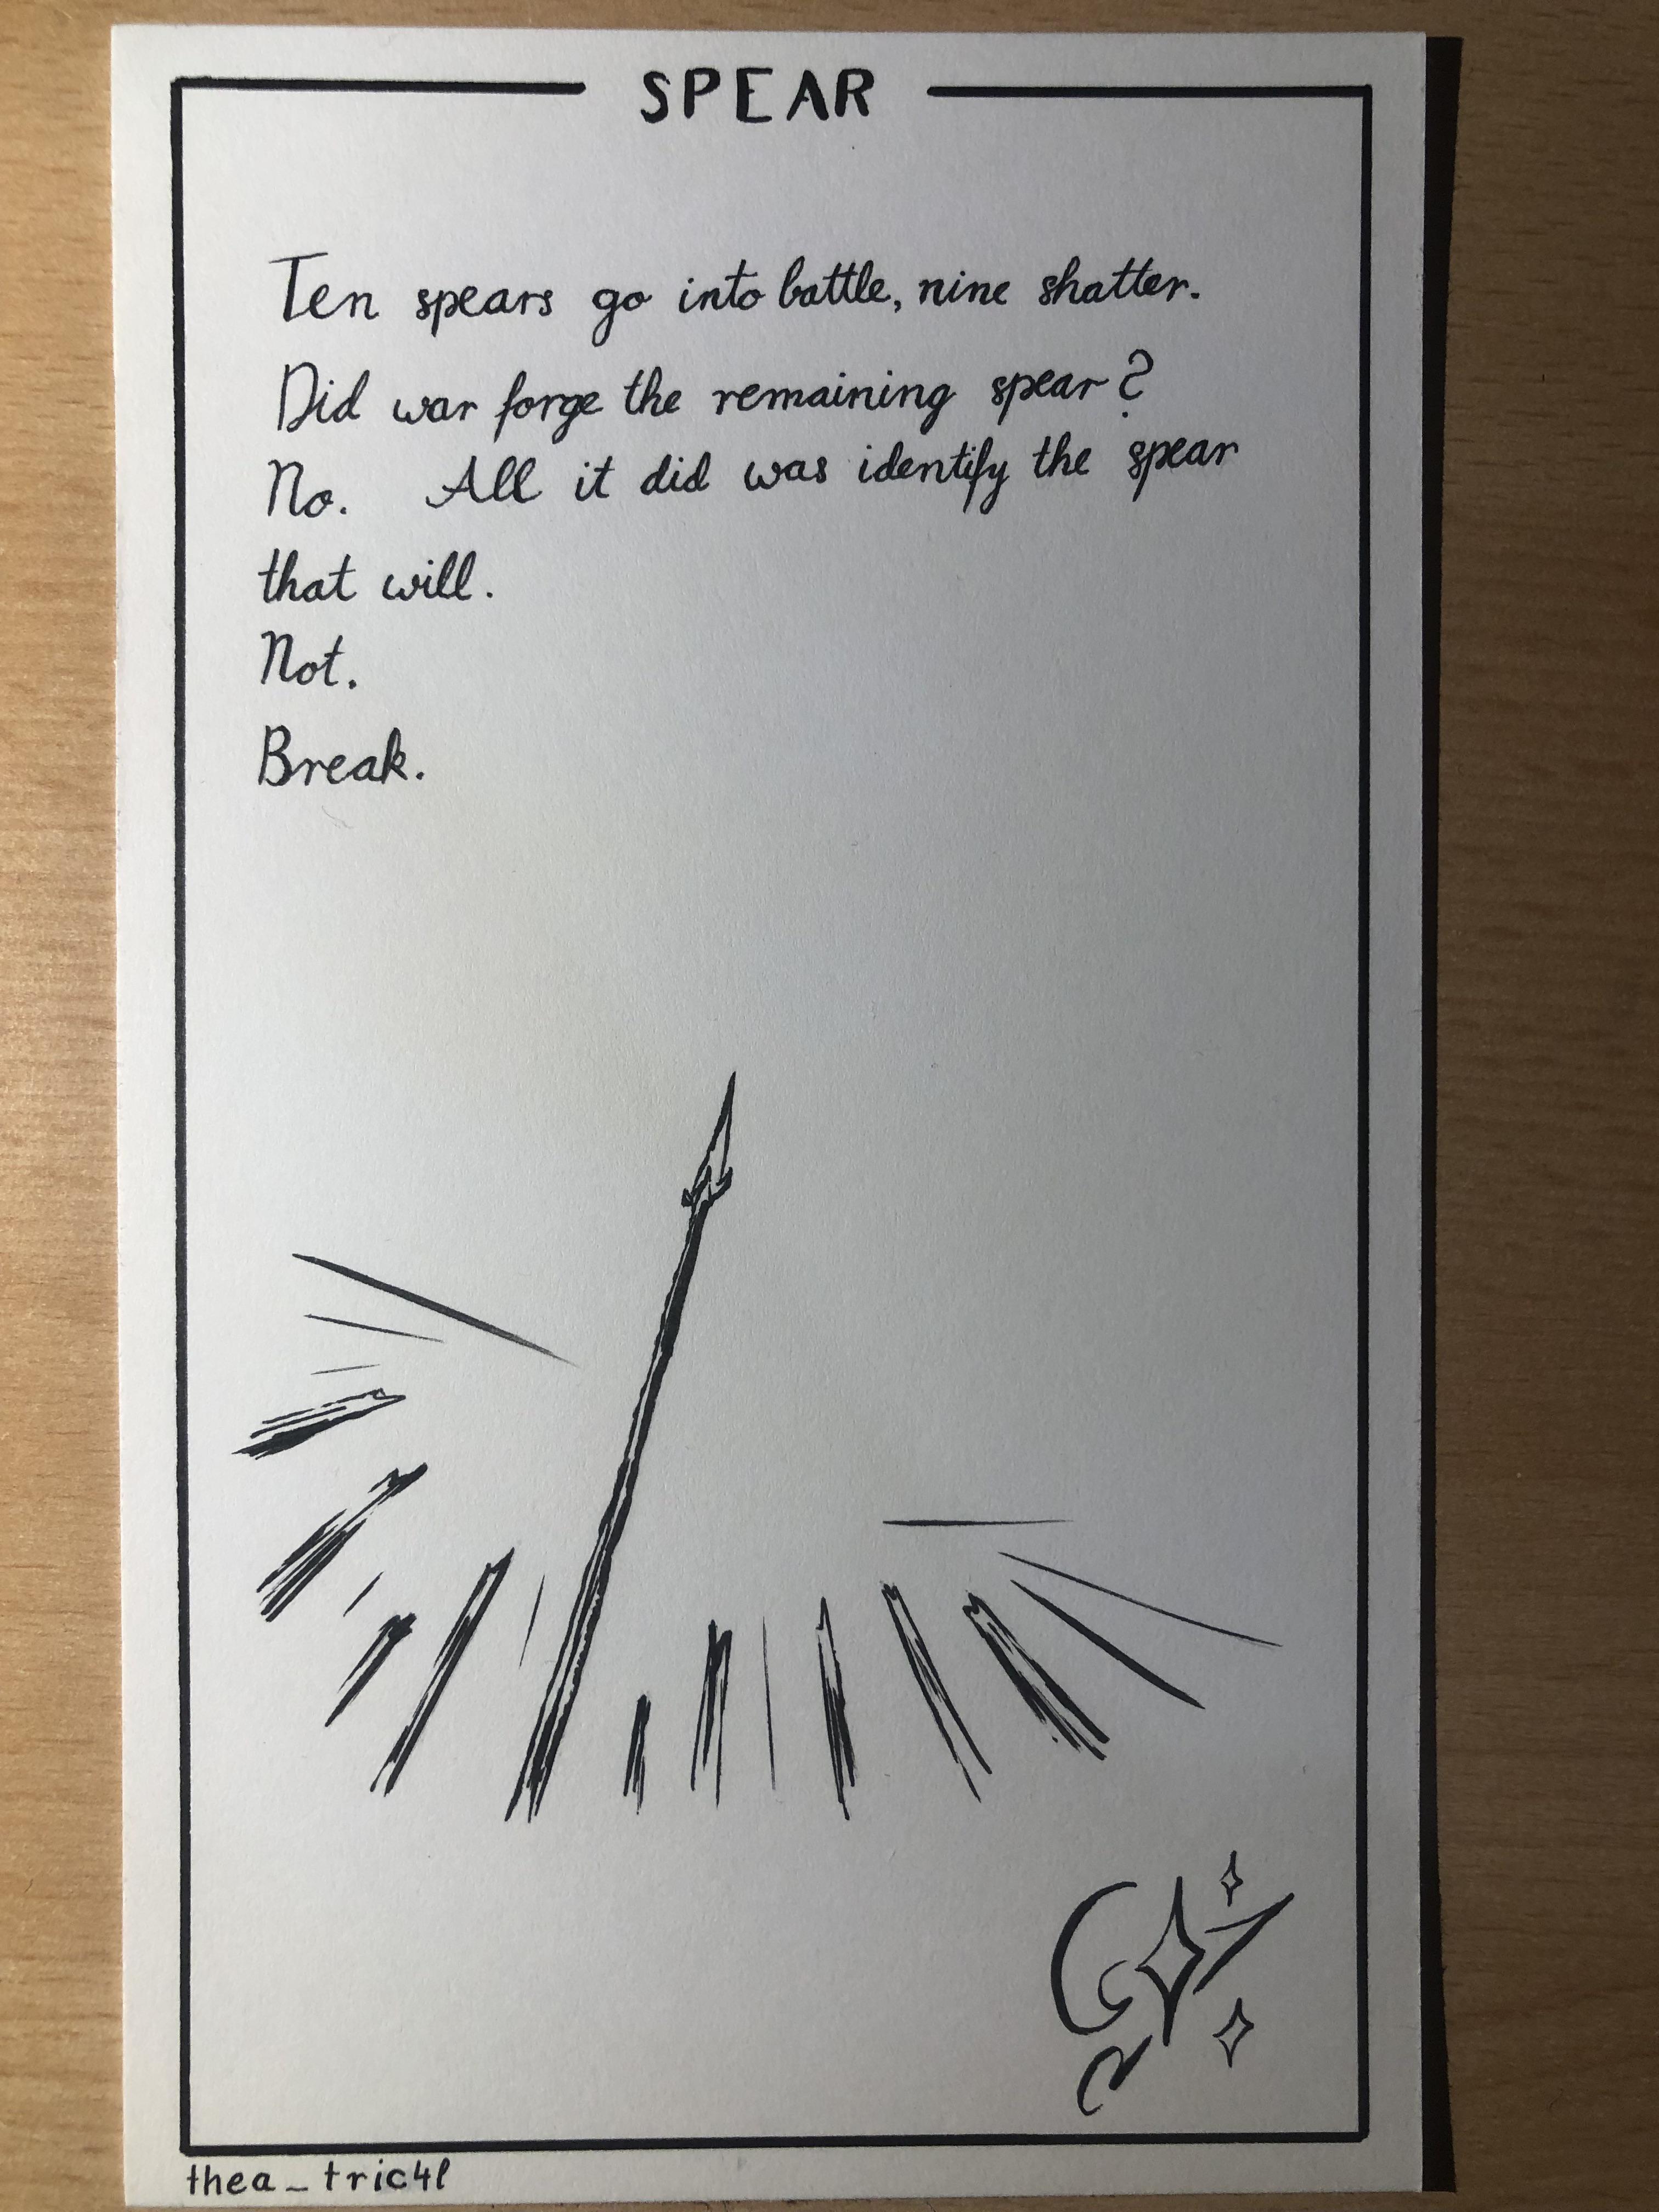 SPEAR
Ten spears go into battle, nine shatter.
Did war forge the remaining spear?
No. All it did was identify the spear
that will.
Not.
Break.
thea_tric4l